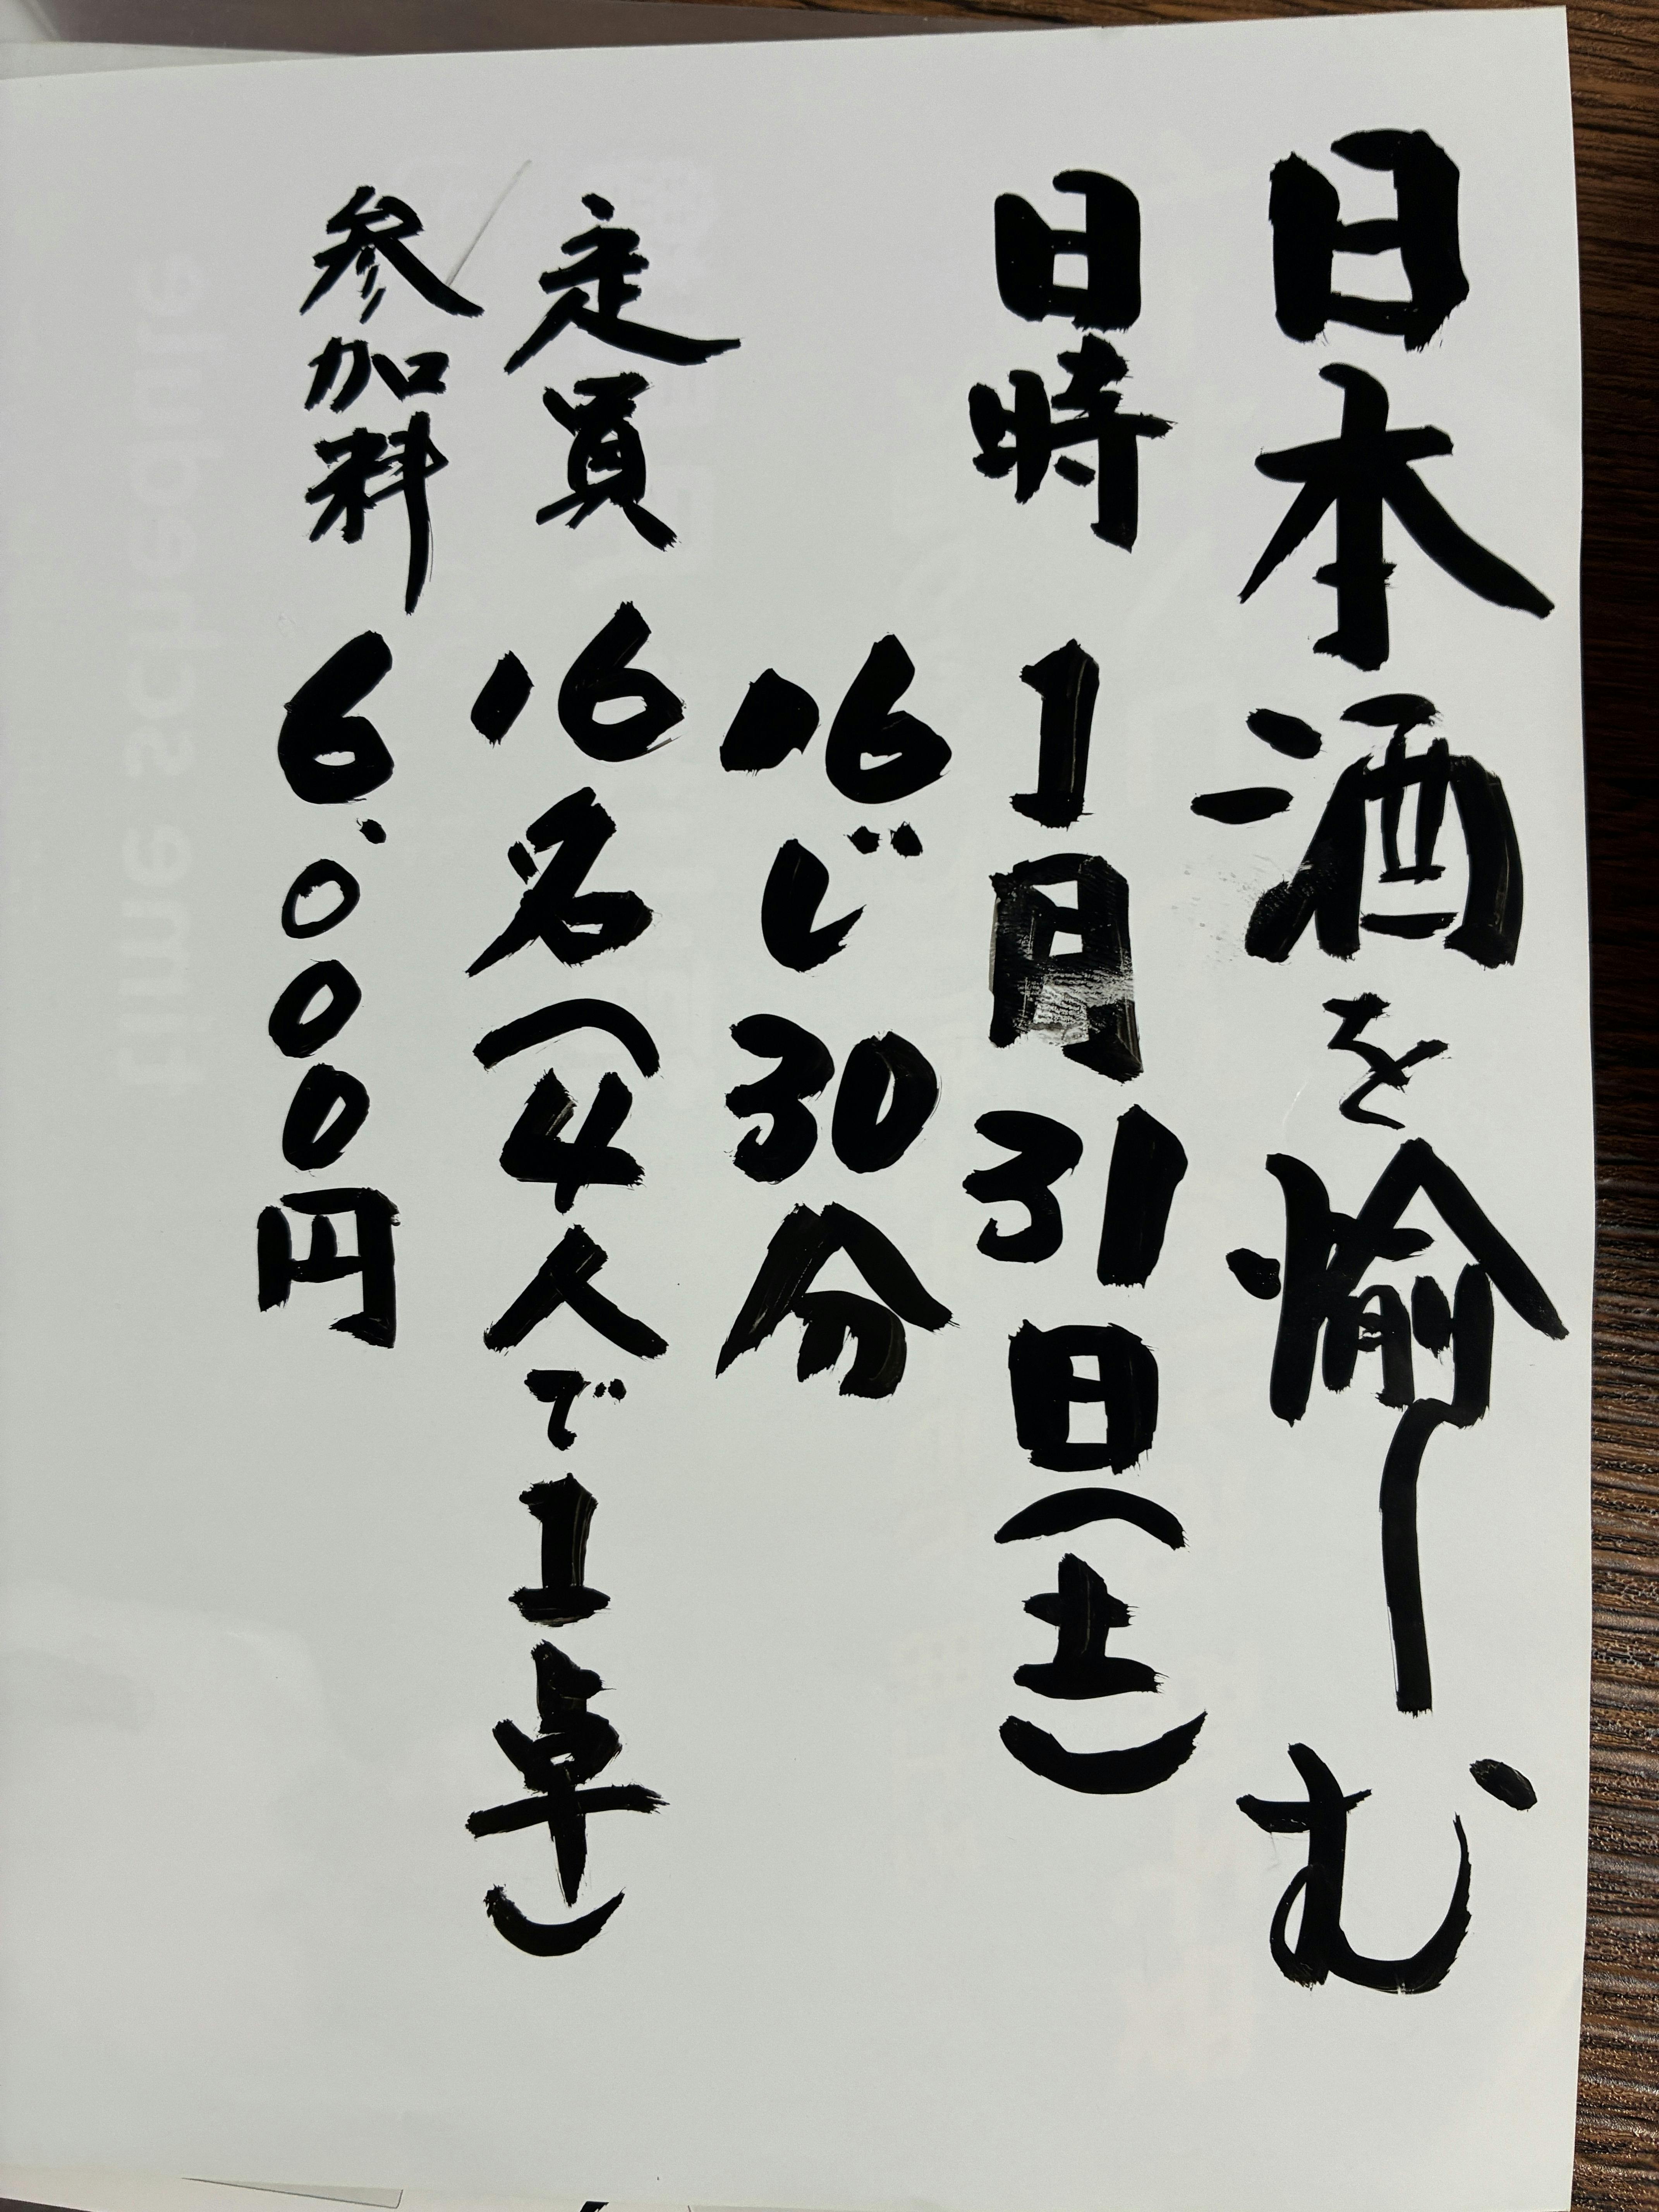 日本酒を愉しむ
日時 1月31日(土)
16じ30分
定員 16名(4人で1卓)
参加料 6.000円